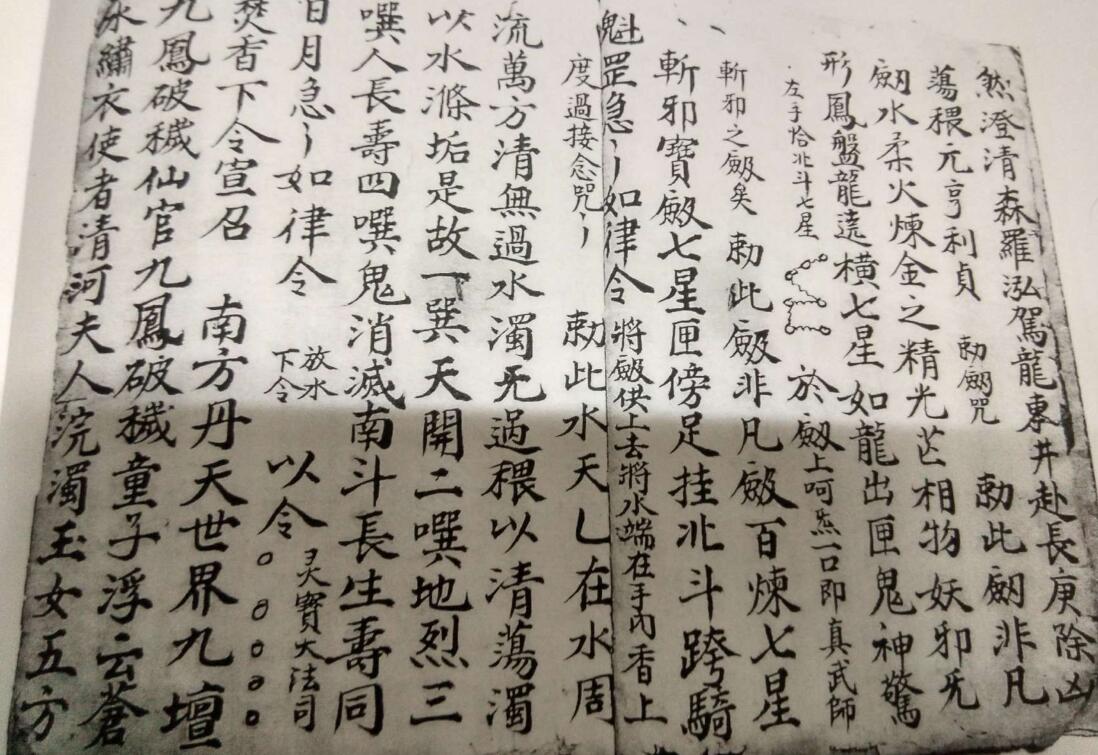 然澄清森羅泓駕龍東井赴長庚除凶
蕩穢元亨利貞 勅劒咒 勅此劒非凡
劒水柔火煉金之精光芒相物妖邪旡
形鳳盤龍遶橫七星如龍出匣鬼神驚
左手恰北斗七星 於劒上呵炁一口即真武師
斬邪之劒矣 勅此劒非凡劒百煉七星
斬邪寶劒七星匣傍足挂北斗跨騎
魁罡急〻如律令 將劒供上去將水端在手內香上
度過接念咒〻 勅此水天乚在水周
流萬方清無過水濁旡過穢以清蕩濁
以水滌垢是故一噀天開二噀地烈三
噀人長壽四噀鬼消滅南斗長生壽同
日月急〻如律令 放水下令 以令 灵寶大法司
焚香下令宣召 南方丹天世界九壇
九鳳破穢仙官九鳳破穢童子浮云蒼
繡衣使者清河夫人浣濁玉女五方